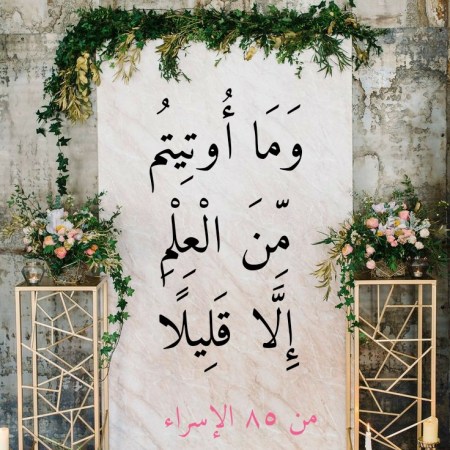 وَمَا أُوتِيتُم
مِّنَ الْعِلْمِ
إِلَّا قَلِيلًا
من ٨٥ الإسراء